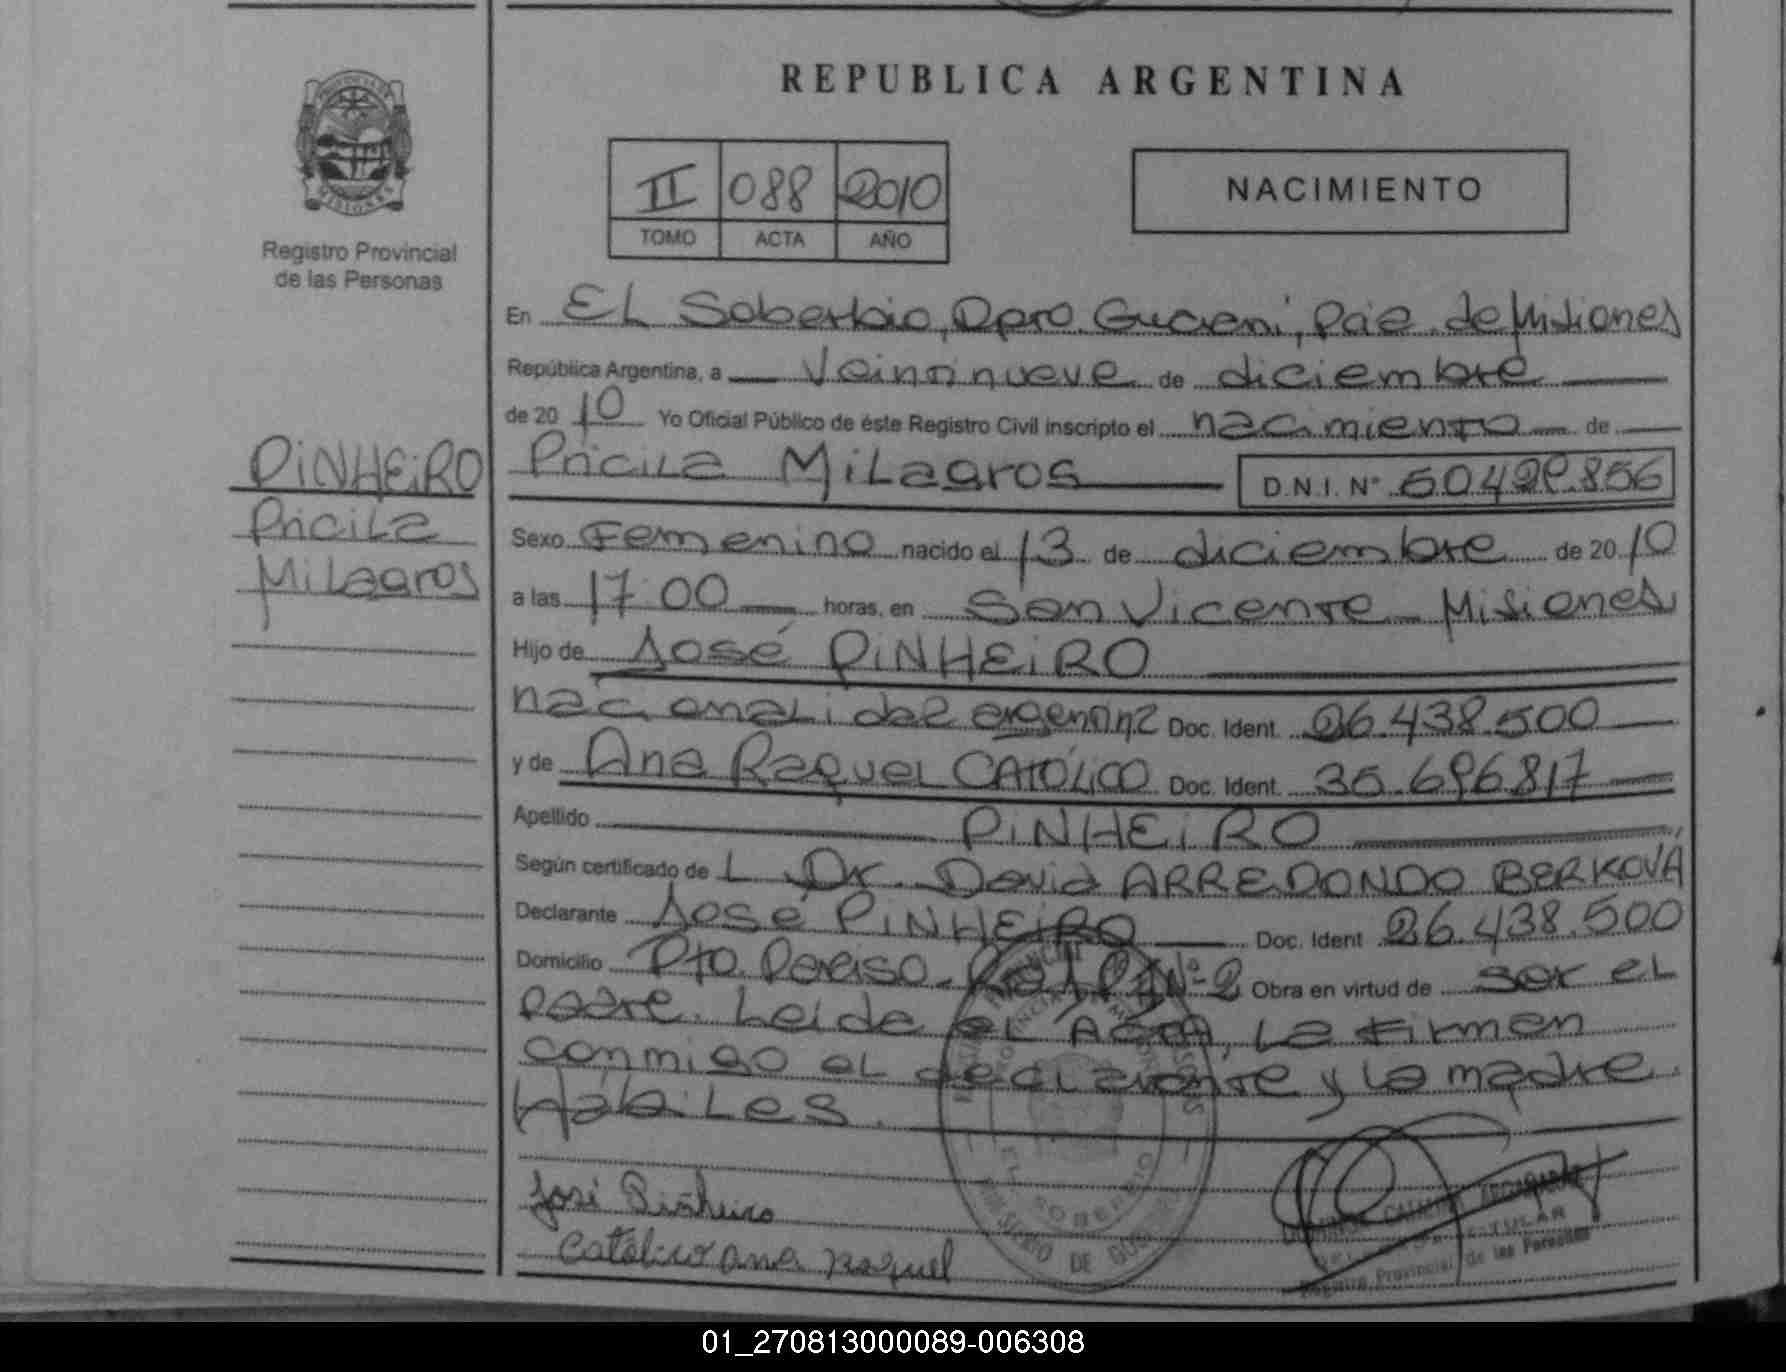 REPUBLICA ARGENTINA
PROVINCIA DE
MISIONES
Registro Provincial
de las Personas
II 088 2010
TOMO ACTA AÑO
NACIMIENTO
En EL Soberbio, Dpto. Guarani, Pcia. de Misiones
República Argentina, a Veintinueve de diciembre
de 2010 Yo Oficial Público de éste Registro Civil inscripto el nacimiento de
PiNHEiRO
Pricila
Milagros
Pricila Milagros D.N.I. Nº 50.429.856
Sexo Femenino nacido el 13 de diciembre de 2010
a las 17:00 horas, en San Vicente Misiones
Hijo de José PiNHEiRO
nacionalidad argentina Doc. Ident. 26.438.500
y de Ana Raquel CATÓLICO Doc. Ident. 35.696.817
Apellido PiNHEiRO
Según certificado de L Dr. David ARREDONDO BERKOVÁ
Declarante José PiNHEiRO Doc. Ident 26.438.500
Domicilio Pto. Paraiso - Nº 2 Obra en virtud de ser el
padre. Leida el Acta, la firman
conmigo el declarante y la madre
Hábiles.
José Piñheiro
Católico ana Raquel
EL SOBERBIO
DE
TITULAR
Registro Provincial de las Personas
01_270813000089-006308